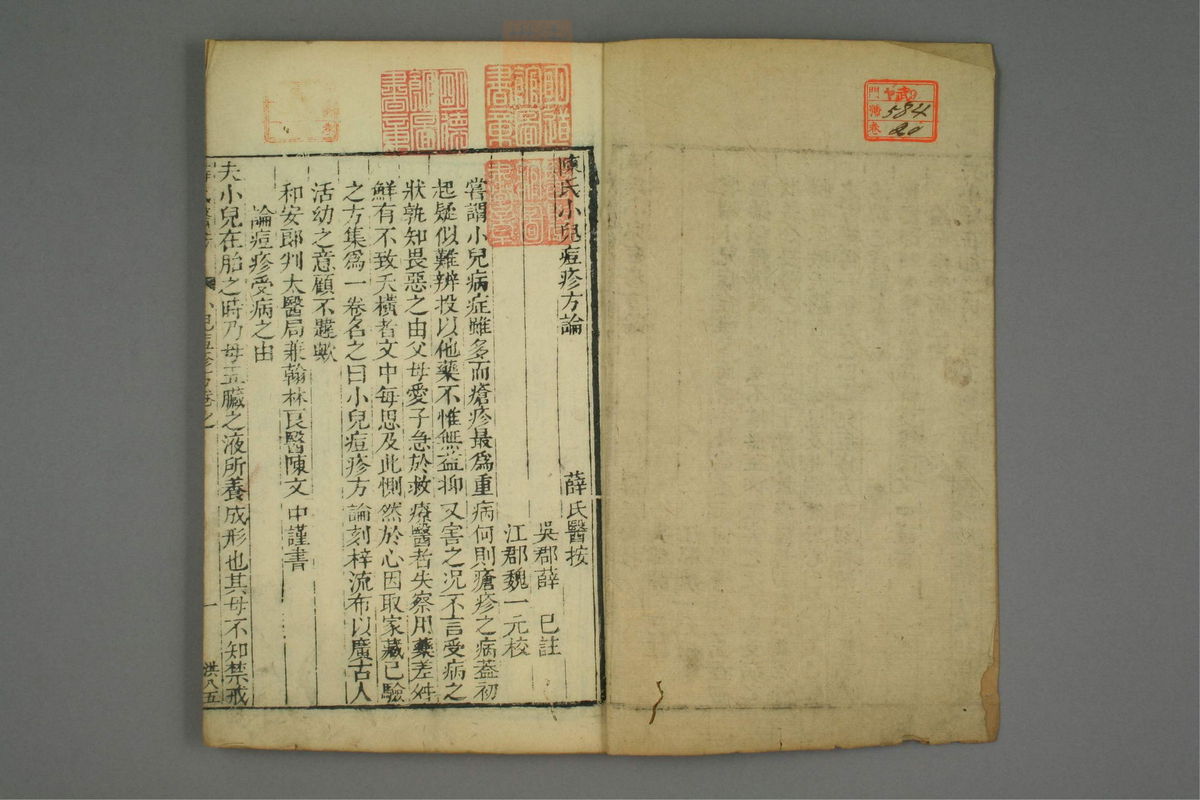 584
20
陳氏小兒痘疹方論
薛氏醫按
吳郡薛 已註
江郡魏一元校
嘗謂小兒病症雖多而瘡疹最爲重病何則瘡疹之病葢初
起疑似難辨投以他藥不惟無益抑又害之况不言受病之
狀孰知畏惡之由父母愛子急於救療醫者失察用藥差舛
鮮有不致夭橫者文中每思及此惻然於心因取家藏已驗
之方集爲一卷名之曰小兒痘疹方論刻梓流布以廣古人
活幼之意顧不韙歟
和安郎判太醫局兼翰林良醫陳文中謹書
論痘疹受病之由
夫小兒在胎之時乃母五臟之液所養成形也其母不知禁戒
一
洪八五